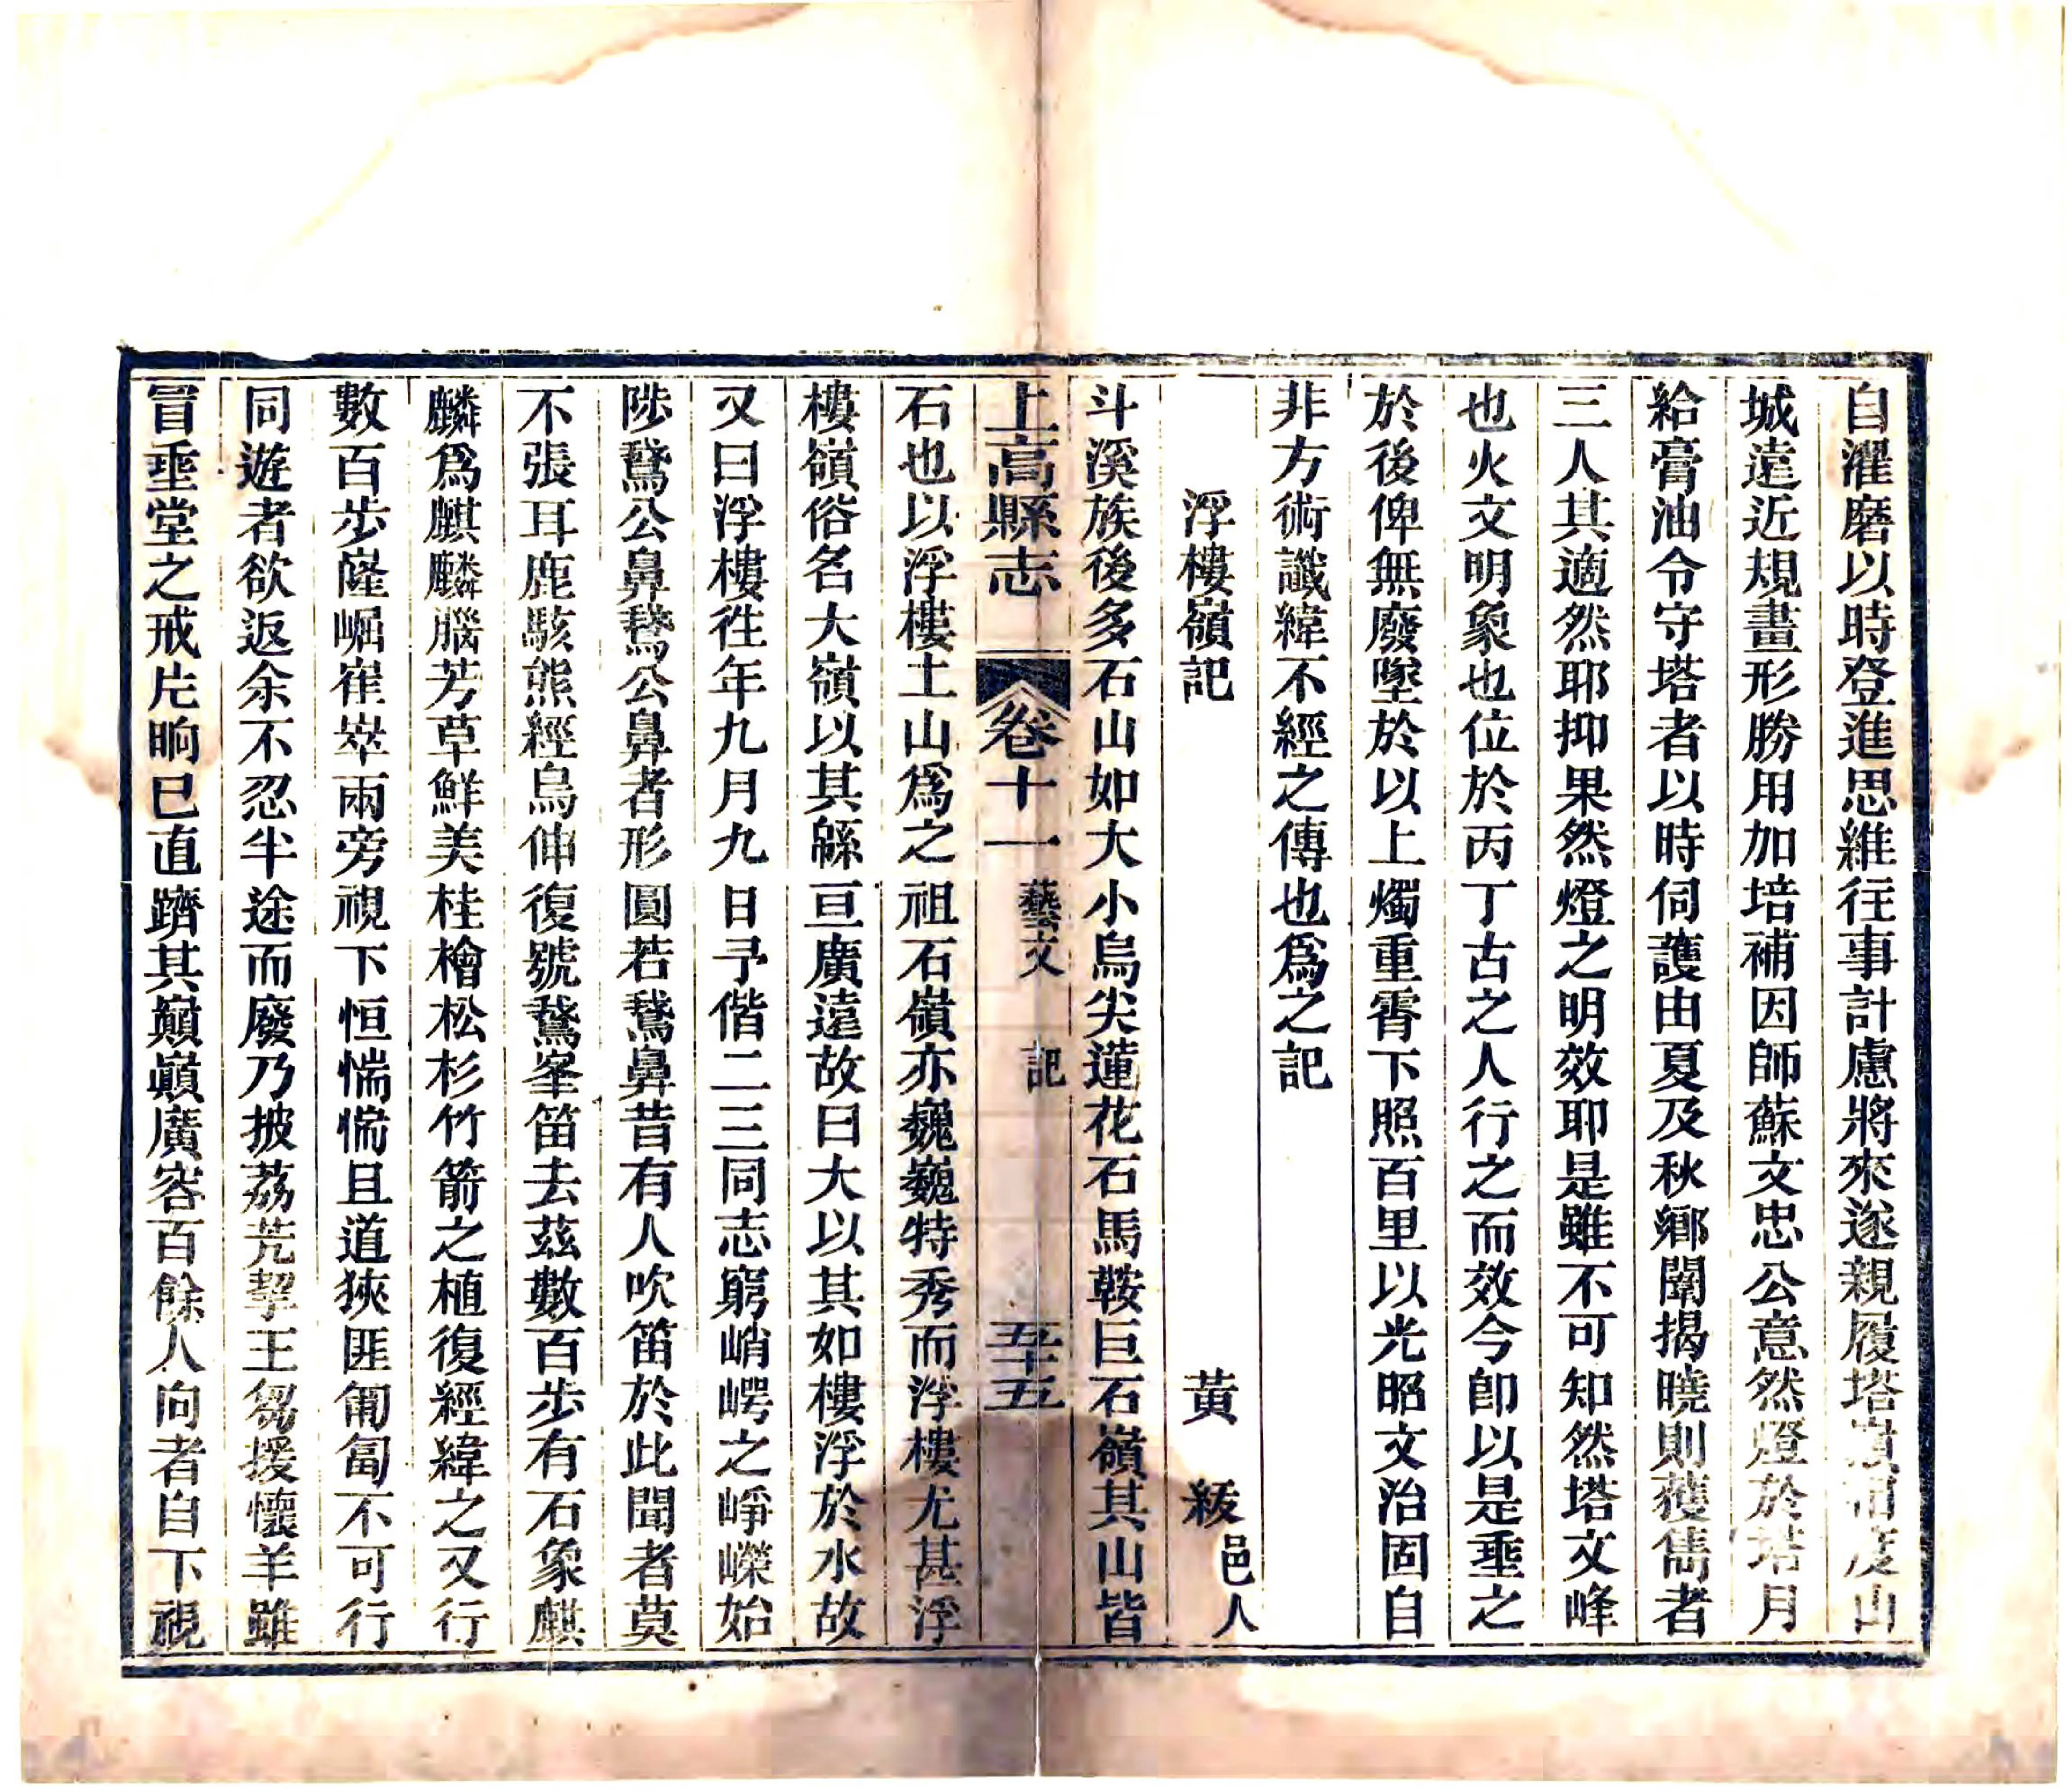 自濯磨以時登進思維往事計慮將來遂親履塔嶺相度山
城遠近規畫形勝用加培補因師蘇文忠公意然燈於塔月
給膏油令守塔者以時伺護由夏及秋鄉闈揭曉則獲雋者
三人其適然耶抑果然燈之明效耶是雖不可知然塔文峰
也火文明象也位於丙丁古之人行之而效今卽以是垂之
於後俾無廢墜於以上燭重霄下照百里以光昭文治固自
非方術讖緯不經之傳也爲之記
浮樓嶺記 黃 綬 邑人
斗溪族後多石山如大小烏尖蓮花石馬鞍巨石嶺其山皆
上高縣志 卷十一 藝文 記 五十五
石也以浮樓土山爲之祖石嶺亦巍巍特秀而浮樓尤甚浮
樓嶺俗名大嶺以其緜亘廣遠故曰大以其如樓浮於水故
又曰浮樓徃年九月九日予偕二三同志窮峭崿之崢嶸始
陟鵞公鼻鵞公鼻者形圓若鵞鼻昔有人吹笛於此聞者莫
不張耳鹿駭熊經鳥伸復號鵞峯笛去茲數百步有石象麒
麟爲麒麟腦芳草鮮美桂檜松杉竹箭之植復經緯之又行
數百步嶐崛崔崒兩旁視下恒惴惴且道狹匪匍匐不可行
同遊者欲返余不忍半途而廢乃披荔芫挈王芻援懷羊雖
冒垂堂之戒片晌巳直躋其巔巔廣容百餘人向者自下視